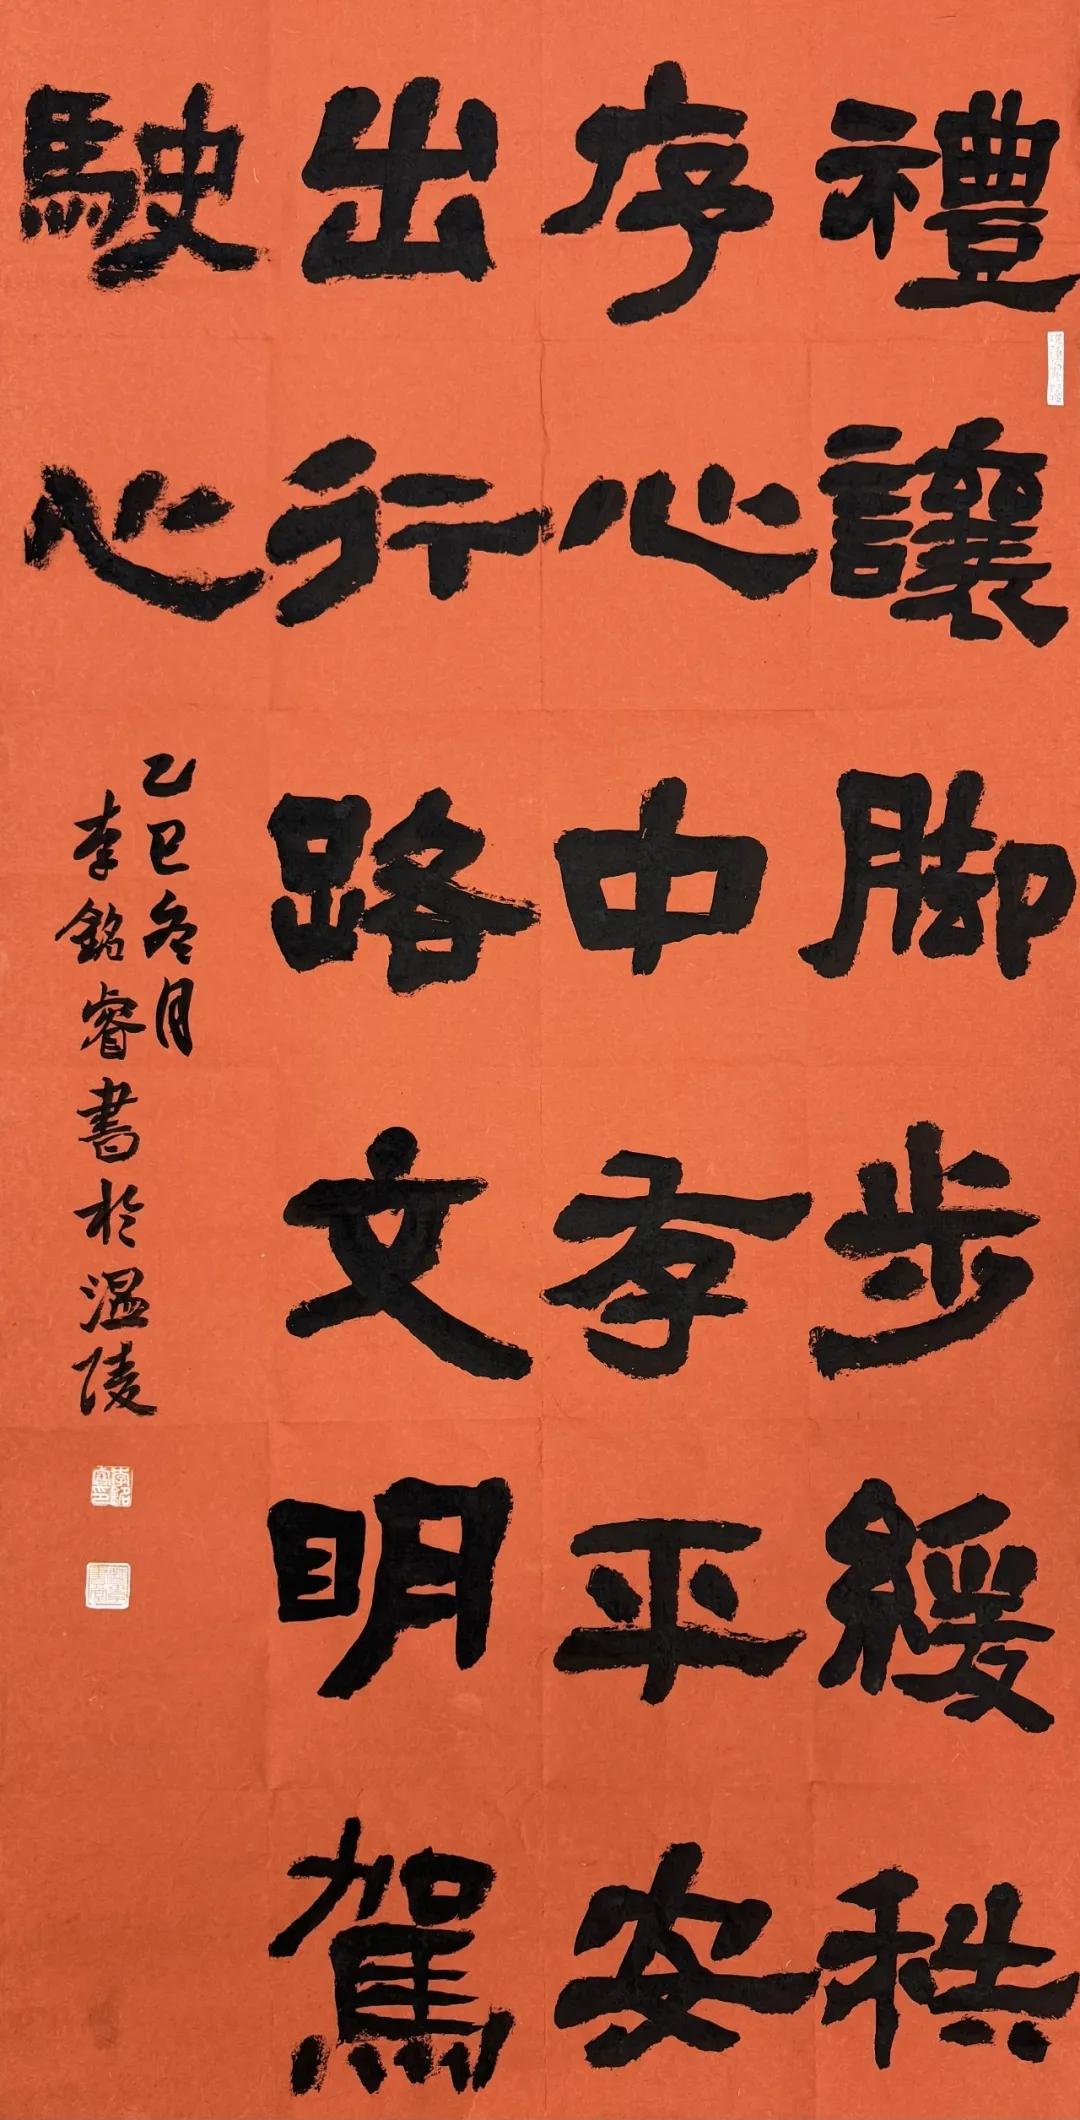 禮讓脚步緩秩
序心中存平安
出行路文明駕
駛心
乙巳冬月
李銘睿書於温陵